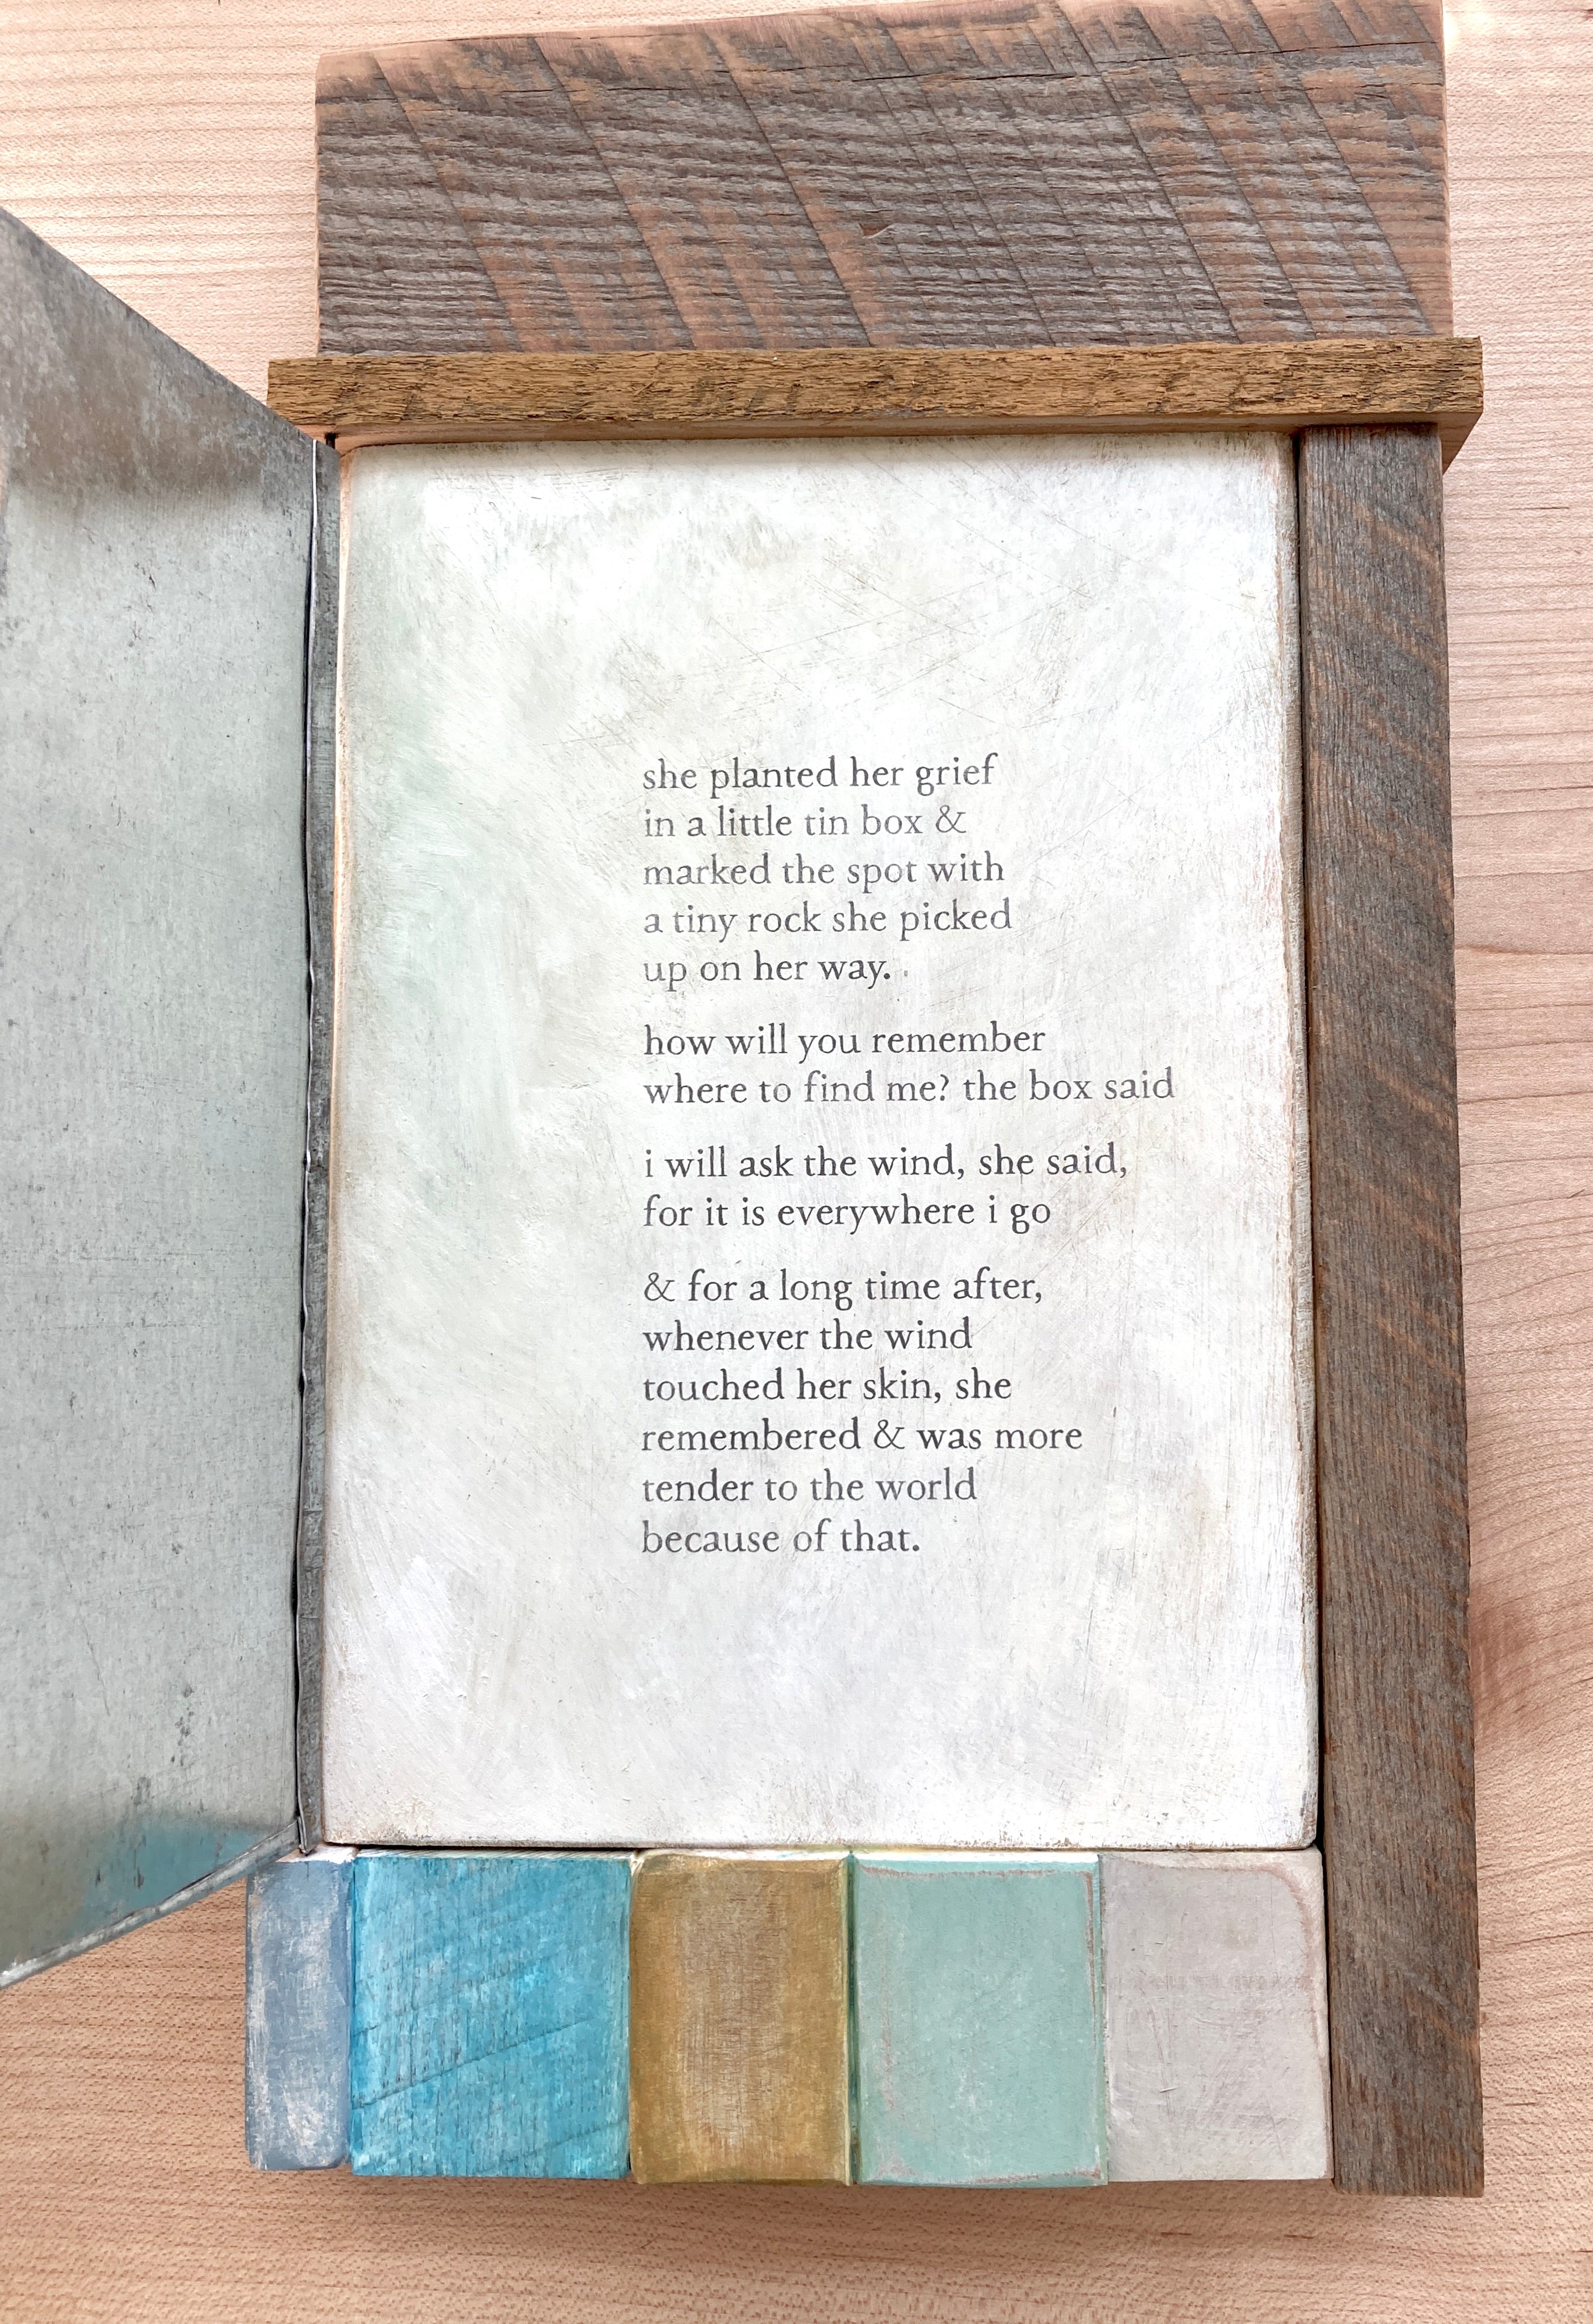 she planted her grief
in a little tin box &
marked the spot with
a tiny rock she picked
up on her way.
how will you remember
where to find me? the box said
i will ask the wind, she said,
for it is everywhere i go
& for a long time after,
whenever the wind
touched her skin, she
remembered & was more
tender to the world
because of that.